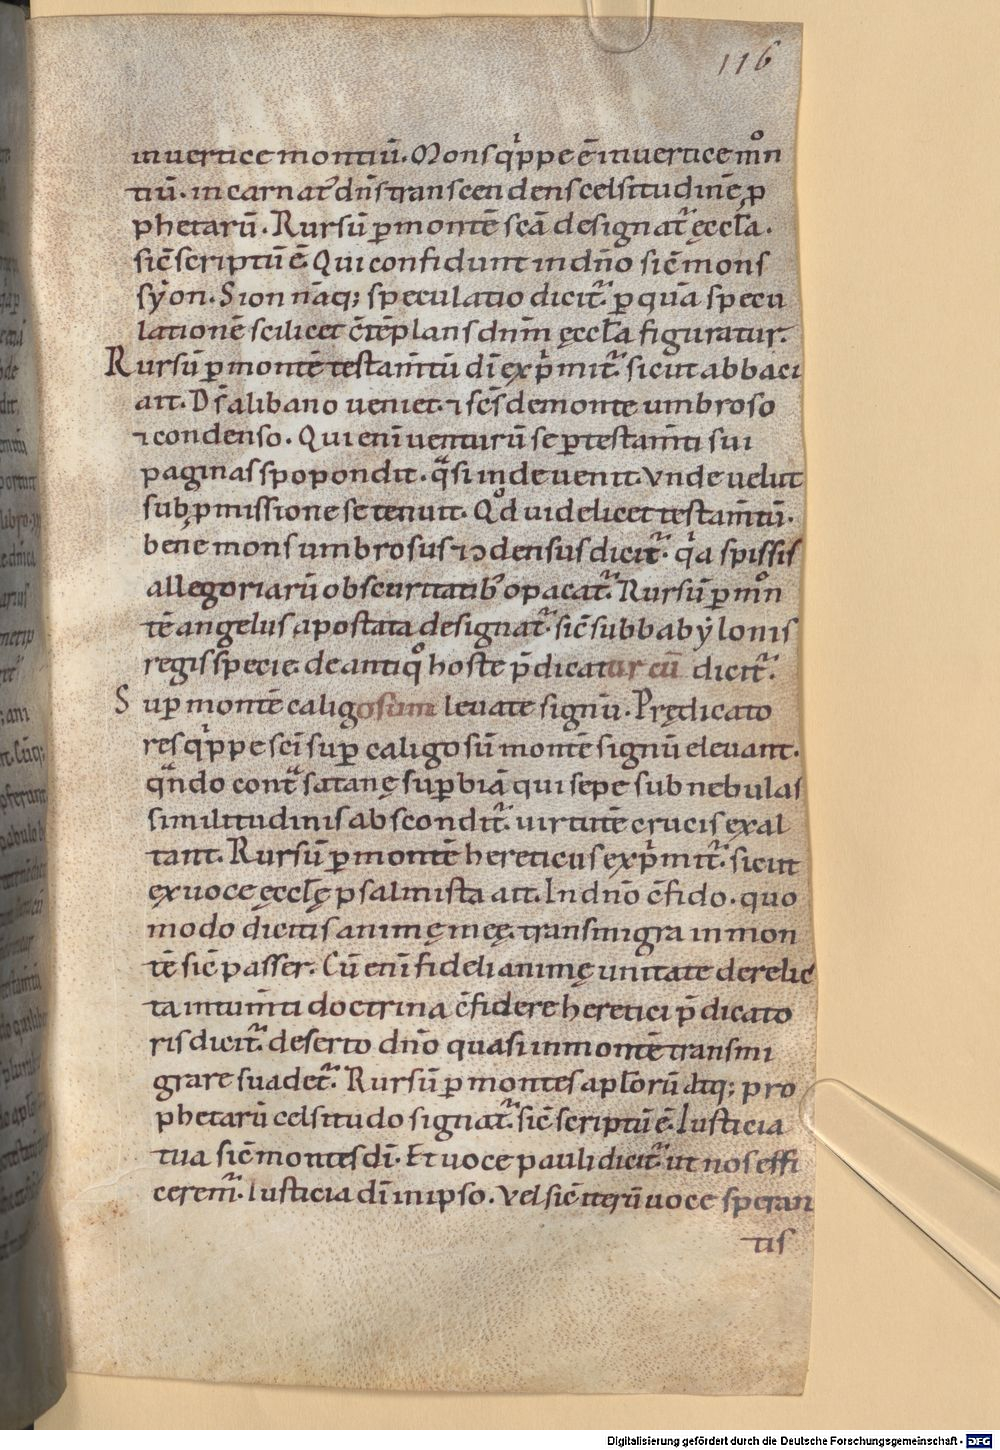 116
inuertice montiū. Mons qͥppe ē inuertice mͦn
tiū. incarnat᷒ dn̄s transcendens celsitudinē p
phetarū. Rursū p montē scā designat᷒ ęccl̄a.
sic̄ scriptū ē. Qui confidunt in dn̄o sic̄ mons
sẏon. Sion nāq; speculatio dicit᷒. p quā specu
lationē scilicet c̄tēplans dn̄m ęccl̄a figuratur.
Rursū p montē testam̄tū dī expͥmit᷒. sicut abbacu
ait. Ds̄ alibano ueniet. ⁊ sc̄s demonte umbroso
⁊ condenso. Qui enī uenturū se p testam̄ti sui
paginas spopondit. qͣsi inde uenit. Vnde uelut
sub pmissione se tenuit. Qͦd uidelicet testam̄tū.
bene mons umbrosus ⁊ ↄdensus dicit᷒. qͥa spissis
allegoriarū obscuritatib᷒ opacat᷒. Rursū p mͦn
tē angelus apostata designat᷒. sic̄ subbabẏlonis
regis specie. de antiqͦ hoste p̄dicatur cū dicit᷒.
Sup montē caligosum leuate signū. Prędicato
res qͥppe scī sup caligosū montē signū eleuant.
qn̄do contͣ satanę supbiā qui sepe sub nebulas
similitudinis abscondit᷒. uirtutē crucis exal
tant. Rursū p montē hereticus expͥmit᷒. sicut
ex uoce ęccl̄ę psalmista ait. In dn̄o c̄fido. quo
modo dicitis animę meę. transmigra in mon
tē sic̄ passer. Cū enī fideli animę unitate derelic
ta intuim̄ti doctrina c̄fidere heretici p̄dicato
ris dicit᷒. deserto dn̄o quasi inmontē transmi
grare suadet᷒. Rursū p montes apl̄orū atq; pro
phetarū celsitudo signat᷒. sic̄ scriptū ē. Iusticia
tua sic̄ montes dī. Et uoce pauli dicit᷒. ut nos effi
cerem᷒. Iusticia dī in ipso. Vel sic̄ iterū uoce speran
tis
Digitalisierung gefördert durch die Deutsche Forschungsgemeinschaft - DFG